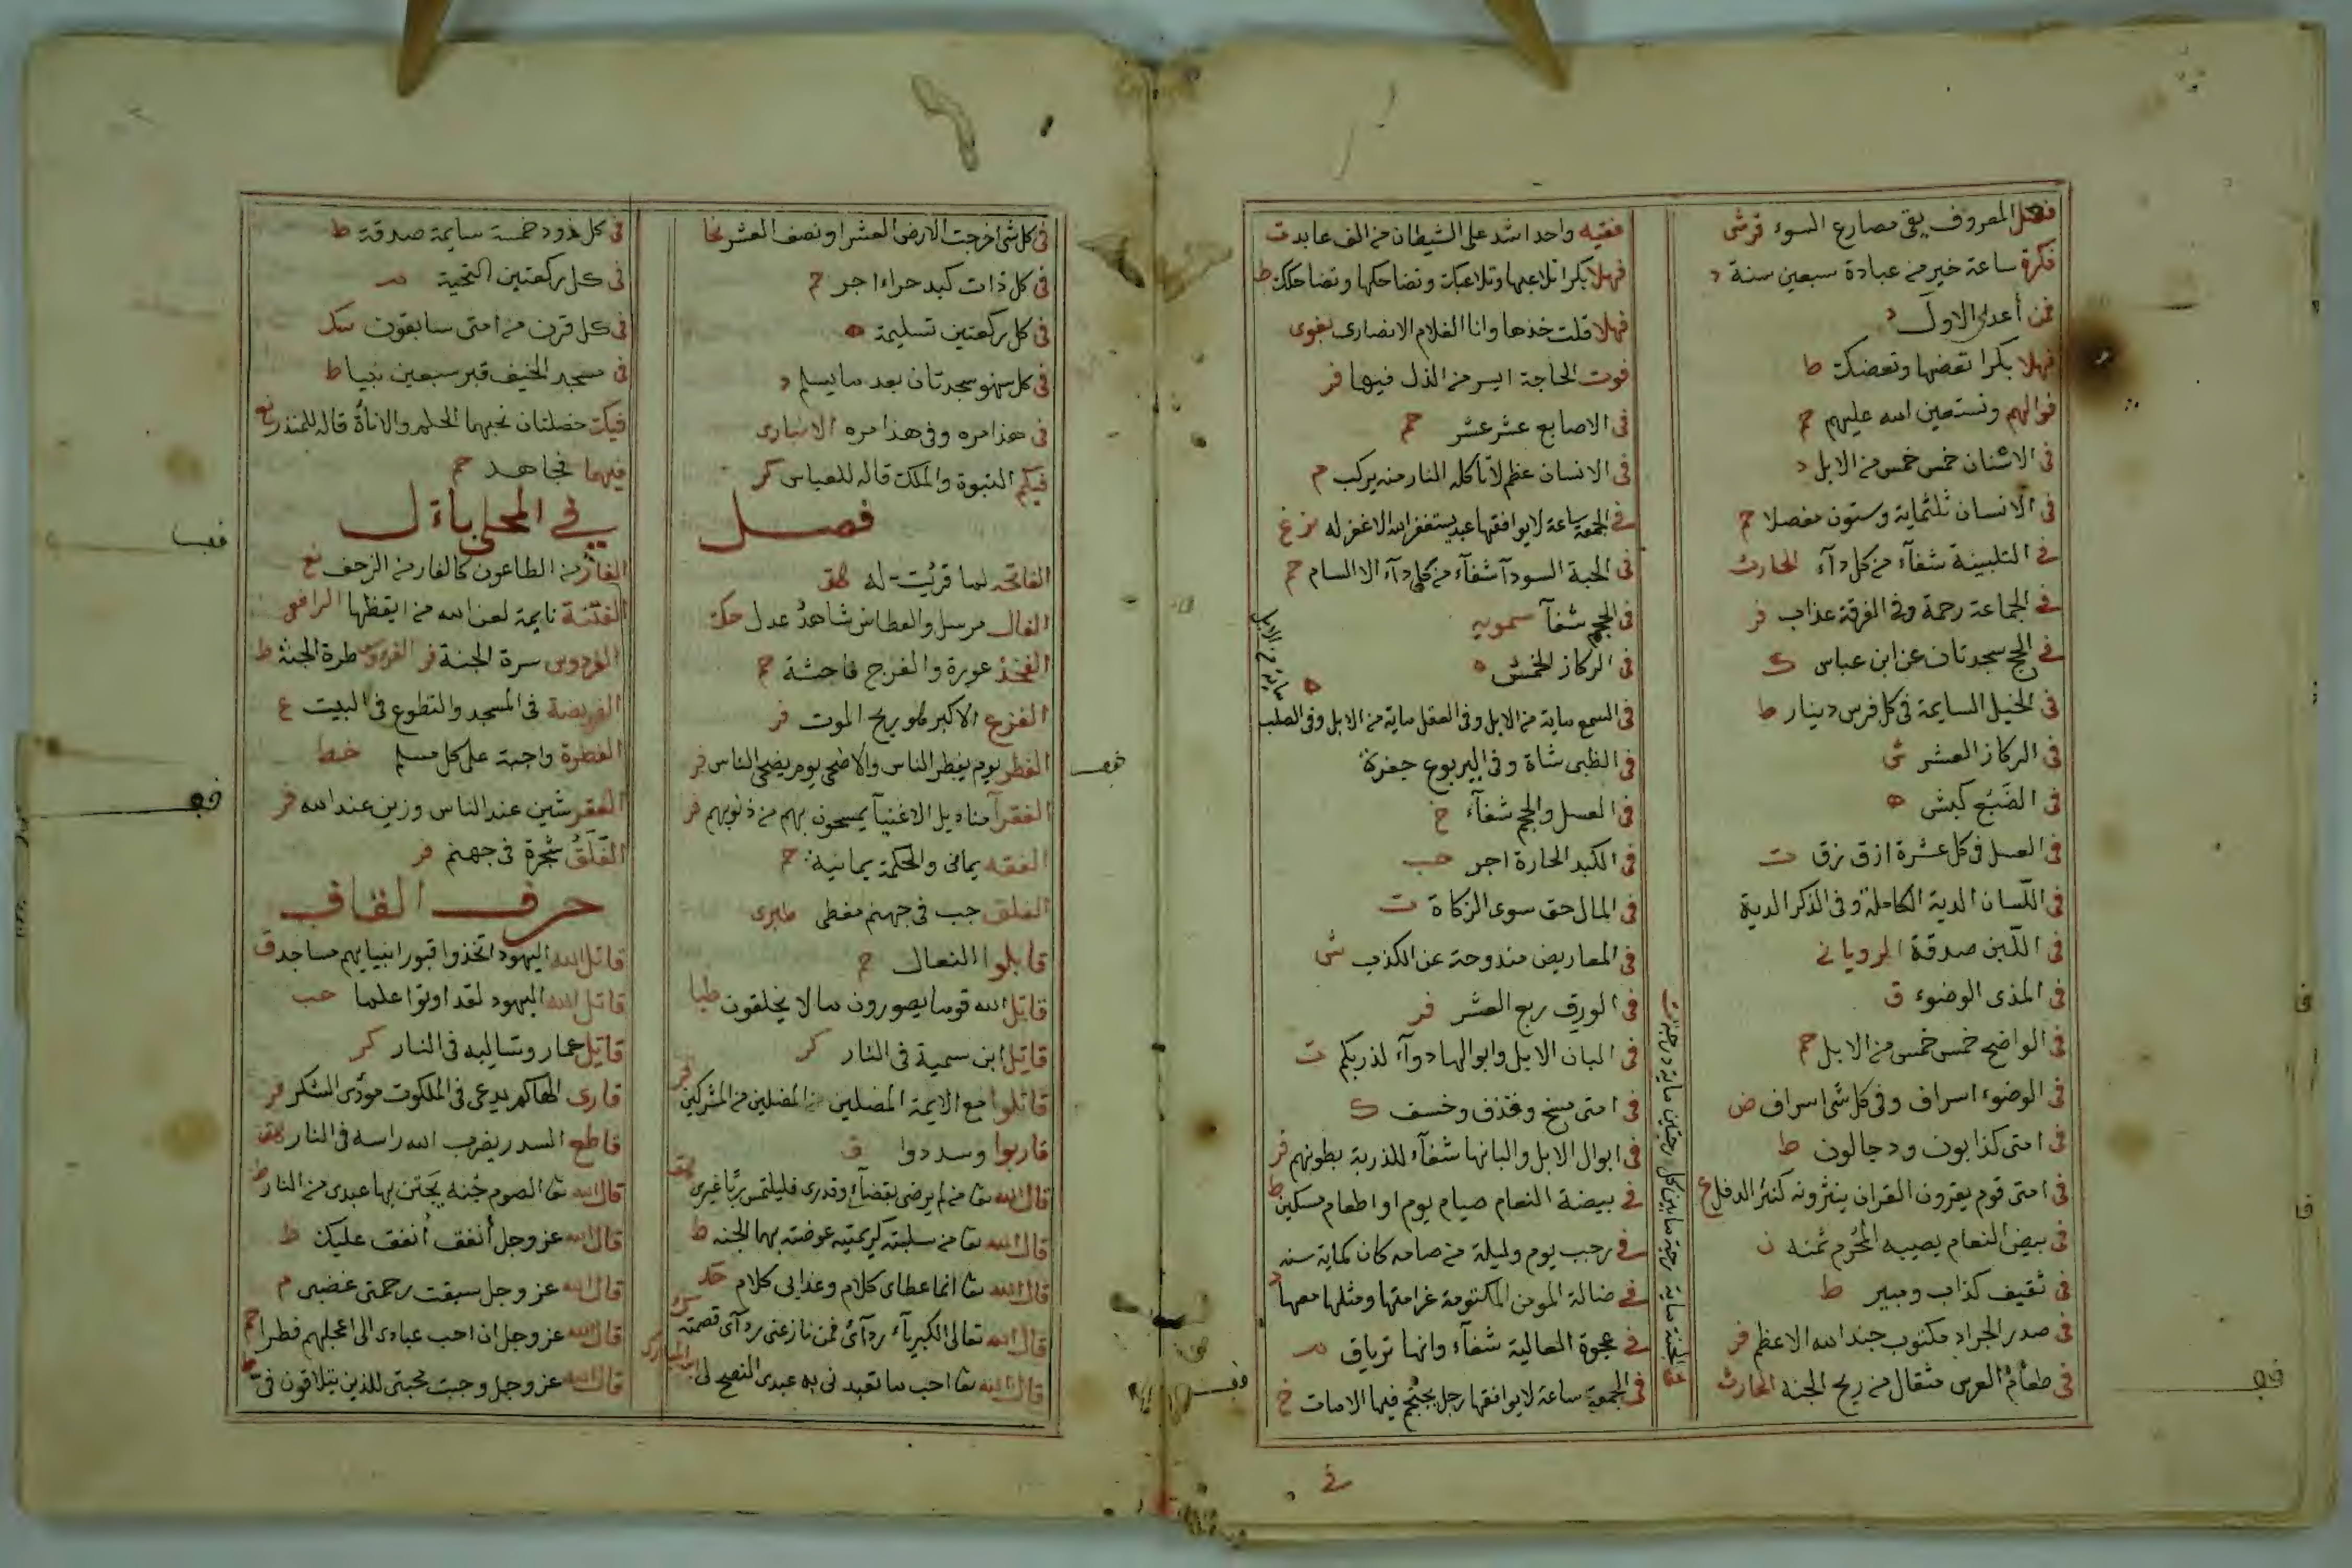 فعل المعروف يقى مصارع السوء قرشى
فكرة ساعة خير من عبادة سبعين سنة د
فمن أعدى الاول د
فهلا بكرا تعضها وتعضك ط
فوالهم ونستعين الله عليهم حم
فى الاسنان خمس خمس من الابل د
فى الانسان ثلثماية وستون مفصلا حم
فى التلبينة شفآء من كل دآء الحارث
فى الجماعة رحمة وفى الفرقة عذاب فر
فى الحج سجدتان عن ابن عباس ك
فى الخيل السايمة فى كل فرس دينار ط
فى الركاز العشر ش
فى الضبع كبش ه
فى العسل فى كل عشرة ازق زق ت
فى اللسان الدية الكاملة وفى الذكر الدية
فى اللبن صدقة الرويانى
فى المذى الوضوء ق
فى الواضح خمس خمس من الابل حم
فى الوضوء اسراف وفى كل شى اسراف ض
فى امتى كذابون ودجالون ط
فى امتى قوم يقرون القران ينثرونه كنثر الدقل ع
فى بيض النعام يصيبه المحرم ثمنه ن
فى ثقيف كذاب ومبير ط
فى صدر الجراد مكتوب جند الله الاعظم فر
فى طعام العرس مثقال من ريح الجنة الحارث
فى الجنة ماية درجة مابين كل درجتين ماية درجة ت
فقيه واحد اشد على الشيطان من الف عابد ت
فهلا بكرا تلاعبها وتلاعبك وتضاحكها وتضاحكك ط
فهلا قلت خذها وانا الغلام الانصارى بغوى
فوت الحاجة ايسر من الذل فيها فر
فى الاصابع عشر عشر حم
فى الانسان عظم لا تاكله النار منه يركب م
فى الجمعة ساعة لا يوافقها عبد يستغفر الله الا غفر له
فى الحبة السودآ شفآء من كل دآء الا السام حم
فى الحجم شفآ سمويه
فى الركاز الخمس ه
فى السمع ماية من الابل وفى العقل ماية من الابل وفى الصلب
ماية من الابل ه
فى الظبى شاة وفى اليربوع جفرة
فى العسل والحجم شفآء خ
فى الكبد الحارة اجر هب
فى المال حق سوى الزكاة ت
فى المعاريض مندوحة عن الكذب ش
فى الورق ربع العشر فر
فى البان الابل وابوالها دوآء لذربكم ت
فى امتى مسخ وقذف وخسف ك
فى ابوال الابل والبانها شفآء للذربة بطونهم فر
فى بيضة النعام صيام يوم او اطعام مسكين ط
فى رجب يوم وليلة من صامه كان كماية سنه
فى ضالة المومن المكتومة غرامتها ومثلها معها د
فى عجوة العالية شفآء وانها ترياق م
فى الجمعة ساعة لا يوافقها رجل يحتجم فيها الا مات خ
فى
فى كل شى اخرجت الارض العشر او نصف العشر نجا
فى كل ذات كبد حراء اجر حم
فى كل ركعتين تسليمة ه
فى كل سهو سجدتان بعد ما يسلم د
فى هذا مره وفى هذا مره الانبارى
فيكم النبوة والملك قاله للعباس كر
فصل
الفاتحه لما قرئت له هق
الفال مرسل والعطاس شاهد عدل حك
الفخذ عورة والفرج فاحشة حم
الفزع الاكبر هو ريح الموت فر
الفطر يوم يفطر الناس والاضحى يوم يضحى الناس فر
الفقرآ مناديل الاغنيآ يمسحون بهم من ذنوبهم فر
الفقه يمانى والحكمة يمانية حم
الفلق جب فى جهنم مغطى طبرى
قابلوا النعال حم
قاتل الله قوما يصورون مالا يخلقون طيا
قاتل ابن سمية فى النار كر
قاتلوا مع الايمة المضلين من المضلين من المشركين
قاربوا وسددوا ق
قال الله تعا من لم يرضى بقضآء وقدرى فليلتمس ربا غيرى
قال الله تعا من سلبته كريمتيه عوضته بهما الجنه ط
قال الله تعا انما عطاى كلام وعذابى كلام
قال الله تعالى الكبريآء ردآئ فمن نازعنى ردآى قصمته
قال الله تعا احب ما تعبد نى به عبدى النصح لى
فى كل ذود خمسة سايمة صدقة ط
فى كل ركعتين التحية م
فى كل قرن من امتى سابقون حك
فى مسجد الخيف قبر سبعين نبيا ط
فيك خصلتان تحبهما الحلم والاناة قاله للمنذر نع
فيهما فجاهد حم
فى المحلى بأل
الفار من الطاعون كالفار من الزحف نع
الفتنة نايمة لعن الله من ايقظها الرافعى
الفردوس سرة الجنة فر الفردوس طرة الجنة ط
الفريضة فى المسجد والتطوع فى البيت ع
الفطرة واجبة على كل مسلم خط
الفقر شين عند الناس وزين عند الله فر
الفلق شجرة فى جهنم فر
حرف القاف
قاتل الله اليهود اتخذوا قبور انبيايهم مساجد ق
قاتل الله اليهود لقد اوتوا علما هب
قاتل عمار وسالبه فى النار كر
قارى الهاكم يدعى فى الملكوت مودى الشكر فر
قاطع السدر يضرب الله راسه فى النار هق
قال الله تعا الصوم جنه يجتن بها عبدى من النار ط
قال الله عز وجل أنفق أنفق عليك ط
قال الله عز وجل سبقت رحمتى غضبى م
قال الله عز وجل ان احب عبادى الى اعجلهم فطرا حم
قال الله عز وجل وجبت محبتى للذين يتلاقون فى